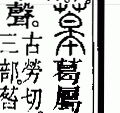 葛屬
聲。古勞切。
三部。